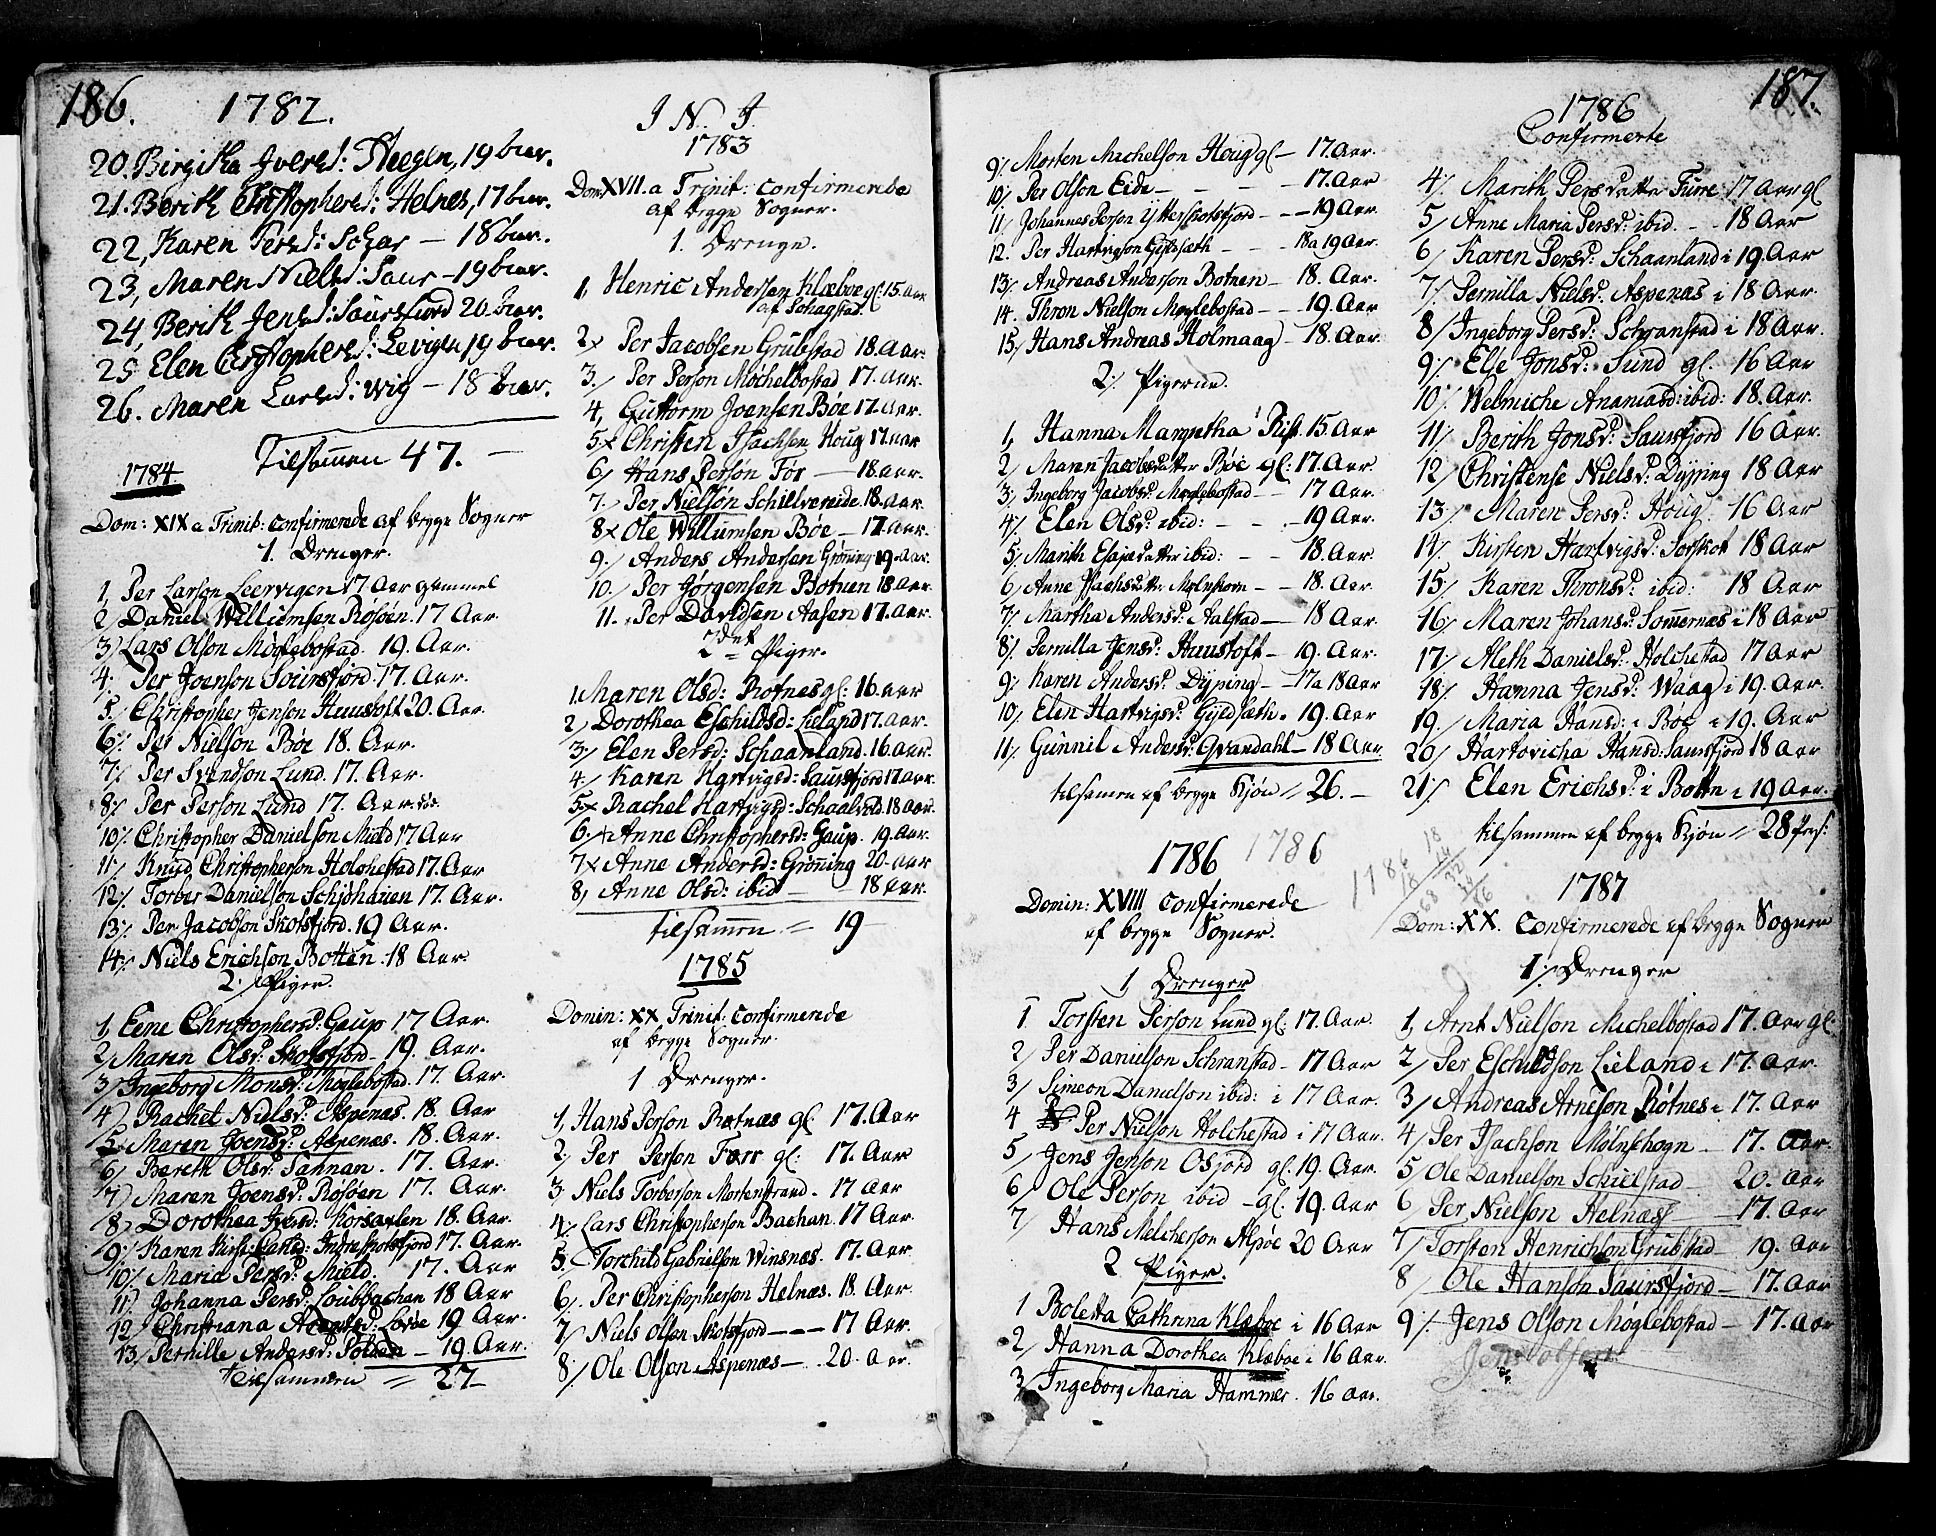 186.
1782.
20. Birgitha Iversd: Steegen, 19 Aar.
21. Berith Christophersd: Helnes, 17 Aar.
22, Karen Persd: — 18 Aar.
23, Maren Nielsd: Saur – 19 Aar.
24, Berith Jensd: Saursfiord 20 Aar.
25. Elen Christophersd: Levigen 19 Aar.
26. Maren Larsd: Wig — 18 Aar.
Tilsammen 47. —
1784.
Dom: XIX a Trinit: Confirmerede af begge Sogner
1. Drenger.
1, Per Larson Leervigen 17 Aar gammel
2 Daniel Willumsen Rosöen 17 Aar.
3) Lars Olson Møglebostad. 19. Aar.
4. Per Joenson Soursfjord. 17. Aar.
5. Christopher Jenson Huustoft 20. Aar.
6/. Per Nielson Bøe 18. Aar.
7/. Per Svendson Lund. 17. Aar.
8/. Per Person Lund 17. Aar.
10/. Christopher Danielson Mield 17 Aar
11/. Knud Christopherson Holchestad 17. Aar.
12/. Torber Danielson 17. Aar.
13/. Per Jacobson Skotsfjord. 19 Aar.
14/. Niels Erichson Botten. 18 Aar.
2/. Piger.
1, Ene Christophersd: Gaup 17 Aar.
2/ Maren Olsd: Skotsfjord – 19. Aar.
3/ Ingeborg Monsd: Møglebostad. 17. Aar.
4/ Rachel Nielsd: Aspenæs. 18. Aar.
5. Maren Joensd: Aspenæs. 18. Aar.
6/ Bereth Olsd: Sannan. 17. Aar.
7/ Maren Joensd: Rosöen 17. Aar.
8) Dorothea Korsaelen 18. Aar.
9/ Karen Kirst: Indreskotsfjord 17. Aar.
10/. Maria Persd: Mield. 17. Aar
11/. Johanna Persd: Loubbachan 18 Aar
12/ Christiana 19 Aar.
13/ Pernille Andersd: — 19. Aar.
Tilsammen = 27—
I N. J.
1783
Dom XVII. a Trinit: Confirmerede
af begge Sogner.
1. Drenge.
1, Henric Andersen Klæboe gl: 15. Aar
af Schagstad.
2x Per Jacobsen Grubstad 18. Aar.
3. / Per Person Møchelbostad 17. Aar.
4, Guttorm Joensen Bøe 17. Aar.
5x Christen Isachsen Houg 17. Aar
6/ Hans Person For — 18. Aar.
7. / Per Nielson Schielvereide. 18. Aar.
8x Ole Willumsen Bøe — 17. Aar.
9. / Anders Andersen Grønning 19. Aar.
10. / Per Jørgensen Botnen 18 Aar.
11. / Per Davidsen Aasen 17. Aar.
2det Piger.
1. Maren Olsd: Rotnes gl: 16. Aar
2 Dorothea Eschildsd: Lieland 17. Aar.
3/ Elen Persd: Schaanland. 16. Aar.
4/ Karen Hartvigsd: Saursfjord 17. Aar.
5x Rachel Hartvigsd: Schaalvold. 18 Aar.
6. x Anne Christophersd: Gaup. 19. Aar
7x Anne Andersd: Grønning 20. Aar
8, Anne Olsd: ibid — 18 Aar.
Tilsammen = 19 —
1785
Domin: XX Trinit: Confirmerede
af begge Sogner.
1 Drenger.
1, Hans Person Rotnæs gl 17. Aar
2, Per Person Forr gl: 17. Aar
3. Niels Torberson Mortenstrand. 17 Aar
4/. Lars Christopherson Bachan. 17 Aar.
5. Torchild Gabrielson Winsnæs. 17. Aar.
6/. Per Christopherson Helnæs. 18. Aar.
7/ Niels Olson Skotsfjord — — 17 Aar.
8/. Ole Olson Aspenæs — . 20. Aar.
9/. Morten Machelson Houg gl — 17. Aar.
10/. Per Olson Eide — — — – 17. Aar
11/ Johannes Person Ytterskotsfjord - - – 19 Aar.
12. Per Hartvigson Gyldsæth – – – 18 a 19 Aar.
13/. Andreas Anderson Botnen – 18. Aar.
14. Thron Nielson Møglebostad – – – 19. Aar
15/. Hans Andreas Holmaag – 18. Aar.
2/. Pigerne.
1, Hanna Margretha Rist. 15. Aar
2/ Maren Jacobsdatter Bøe gl: 17. Aar.
3/, Ingeborg Jacobsd: Møglebostad – – 17 Aar.
4/. Elen Olsd: ibid: – – . – 19 Aar.
5/. Marith ibid: – – 18. Aar.
6/ Anne Isachsdatter – – 18. Aar.
7/. Martha Andersd: Aalstad — 18 Aar.
8/. Pernilla Jensd: Huustoft — 19. Aar.
9/ Karen Andersd: Dyping – – 17 a 18 Aar
10/. Elen Hartvigsd: Gyldsæth. – 19. Aar
11/. Gunnil Andersd: Qvandahl – 18 Aar.
Tilsamen af begge Kjøn = 26. —
1786 1786
Domin: XVIII Confirmerede
af begge Sogner.
1 Drenger
1 Torsten Person Lund gl. 17. Aar.
2/ Per Danielson Schranstad – 17 Aar
3/ Simeon Danielson ibid: i 17 Aar.
4 Per Nielson Holchestad i 17 Aar.
5/ Jens Jenson Osfjord gl. 19. Aar.
6/ Ole Person ibid – gl. 19. Aar.
7/ Hans Melcherson Alpøe 20 Aar
2 Piger.
1 Boletta Cathrina Klæboe i 16 Aar
2/ Hanna Dorothea Klæboe i 16 Aar.
3/ Ingeborg Maria Hammer. 16 Aar.
187.
1786
Confirmerte
4/. Marith Persdatter Furre 17 Aar gl
5/ Anne Maria Persd: ibid. – 18 Aar
6/ Karen Persd: Schaanland i 19 Aar
7/. Pernilla Nielsd: Aspenæs i 18 Aar.
8/ Ingeborg Persd: Schranstad i 18 Aar.
9/. Else Jonsd: Sund gl. 16 Aar
10/. Welmiche Ananiasd: ibid: 18. Aar.
11/. Berith Jonsd: Saursfjord 16 Aar
12/ Christense Nielsd: Dyping 18 Aar
13/. Maren Persd: Houg. 16 Aar
14/. Kirsten Hartvigsd: Sorskot 18 Aar
15/. Karen Thronsd: ibid: 18 Aar
16/. Maren Johansd: Sommernæs i 18 Aar
17/. Aleth Danielsd: Holchestad 17 Aar
18/. Hanna Jensd: Waag i 19. Aar.
19. Maria Hansd: i Bøe i 19. Aar
20/ Hartvicha Hansd: Saursfjord 18 Aar
21/. Elen Erichsd: i Botten i 19 Aar.
Tilsammen af begge Kjøn = 28 Pers:
1787
Dom: XX. Confirmerede af begge Sogner
1/. Drenger
1, Arnt Nielson Michelbostad 17. Aar gl:
2/ Per Eschildson Lieland i 17. Aar.
3/ Andreas Arneson Røtnes i 17. Aar
4/ Per Isachson Mølnshogn – 17. Aar.
5/ Ole Danielson Schielstad – 20. Aar
6/ Per Nielson Helnæs – 17. Aar
7/ Torsten Henrichson Grubstad 19. Aar
8/ Ole Hanson Saursfjord – 17. Aar
9/. Jens Olson Møglebostad – 17. Aar
Jens Olsen